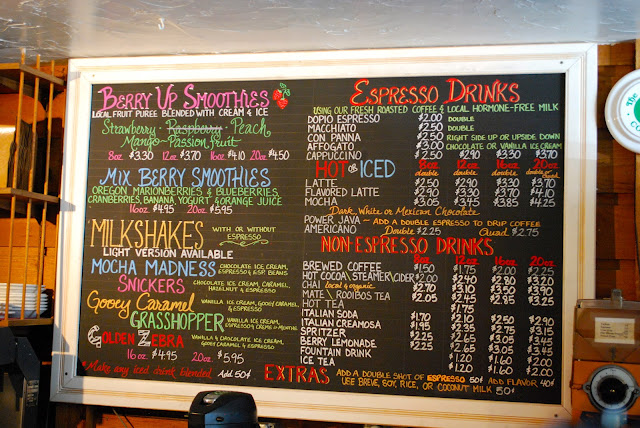 BERRY UP SMOOTHIES
LOCAL FRUIT PUREE BLENDED WITH CREAM & ICE
Strawberry · Raspberry · Peach
Mango~Passion fruit
8oz. $3.30 12oz. $3.70 16oz $4.10 20oz $4.50
MIX BERRY SMOOTHIES
OREGON MARIONBERRIES & BLUEBERRIES,
CRANBERRIES, BANANA, YOGURT & ORANGE JUICE
16oz $4.95 20oz $5.95
MILKSHAKES WITH OR WITHOUT ESPRESSO
LIGHT VERSION AVAILABLE
MOCHA MADNESS CHOCOLATE ICE CREAM, ESPRESSO & ESP. BEANS
SNICKERS CHOCOLATE ICE CREAM, CARAMEL, HAZELNUT & ESPRESSO
Gooey Caramel VANILLA ICE CREAM, GOOEY CARAMEL & ESPRESSO
GRASSHOPPER VANILLA ICE CREAM, ESPRESSO, CREME de MENTHE
GOLDEN ZEBRA VANILLA & CHOCOLATE ICE CREAM, GOOEY CARAMEL & ESPRESSO
16oz $4.95 20oz. $5.95
*Make any iced drink blended Add 50¢
ESPRESSO DRINKS
USING OUR FRESH ROASTED COFFEE & LOCAL HORMONE-FREE MILK
DOPIO ESPRESSO $2.00 DOUBLE
MACCHIATO $2.50 DOUBLE
CON PANNA $2.50 RIGHT SIDE UP OR UPSIDE DOWN
AFFOGATO $3.00 CHOCOLATE OR VANILLA ICE CREAM
CAPPUCCINO $2.50 $2.90 $3.30 $3.70
HOT OR ICED 8oz double 12oz double 16oz double 20oz double
LATTE $2.50 $2.90 $3.30 $3.70
FLAVORED LATTE $2.90 $3.30 $3.70 $4.10
MOCHA $3.05 $3.45 $3.85 $4.25
Dark, White or Mexican Chocolate
POWER JAVA ~ ADD A DOUBLE ESPRESSO TO DRIP COFFEE
AMERICANO Double $2.25 Quad $2.75
NON-ESPRESSO DRINKS
8oz 12oz 16oz 20oz
BREWED COFFEE $1.50 $1.75 $2.00 $2.25
HOT COCOA/STEAMER/CIDER $2.20 $2.40 $2.80 $3.20
CHAI local & organic $2.90
MATE \ ROOIBOS TEA $2.05 $2.45 $2.95 $3.25
HOT TEA $1.75
ITALIAN SODA $1.70 $2.50 $2.90
ITALIAN CREAMOSA $1.95 $2.35 $2.75 $3.15
SPRITZER $2.25 $3.05 $3.45
BERRY LEMONADE $2.25 $2.65 $3.05 $3.45
FOUNTAIN DRINK $1.20 $1.60 $2.00
ICE TEA $1.20 $1.60 $2.00
EXTRAS ADD A DOUBLE SHOT OF ESPRESSO 50¢ ADD FLAVOR 40¢
USE BREVE, SOY, RICE, OR COCONUT MILK 50¢
The